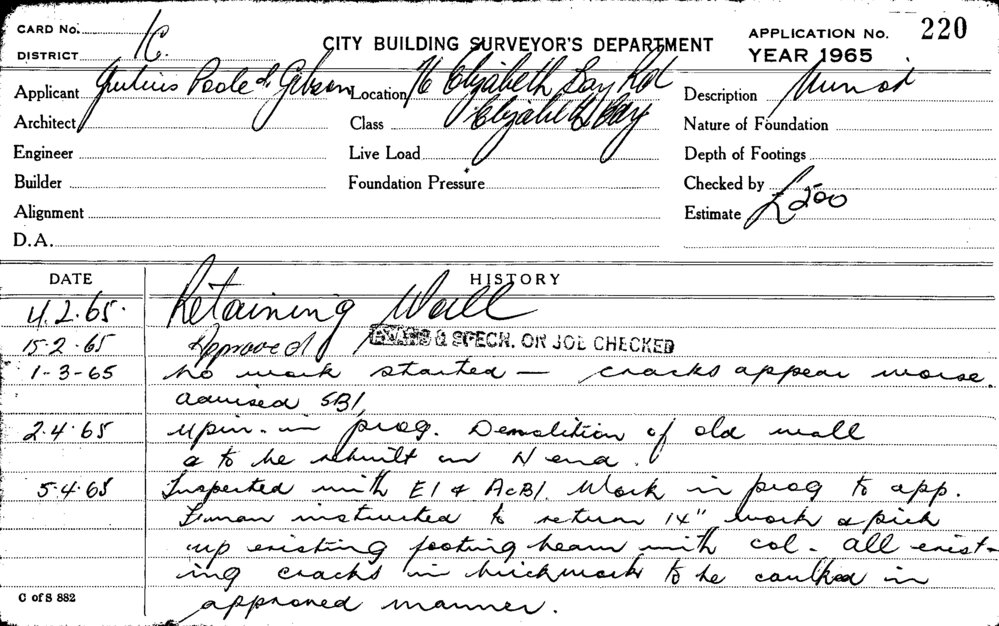 CARD No.
DISTRICT
CITY BUILDING SURVEYOR'S DEPARTMENT
APPLICATION No. 220
YEAR 1965
Applicant Poole & Gibson
Location 16 Elizabeth Bay Rd
Elizabeth Bay
Description Minor
Architect
Class
Nature of Foundation
Engineer
Live Load
Depth of Footings
Builder
Foundation Pressure
Checked by
Alignment
Estimate £200
D.A.
DATE HISTORY
4.2.65. Retaining Wall
15-2-65 Approved PLANS & SPECN. ON JOB CHECKED
1-3-65 No work started — cracks appear worse.
advised SBI,
2.4.65 in prog. Demolition of old wall
& to be rebuilt on N end.
5.4.65 Inspected with EI & AcBI. Work in prog to app.
instructed to return 14" work & pick
up existing footing beam with col - all exist-
ing cracks in brickwork to be caulked in
approved manner.
C of S 882